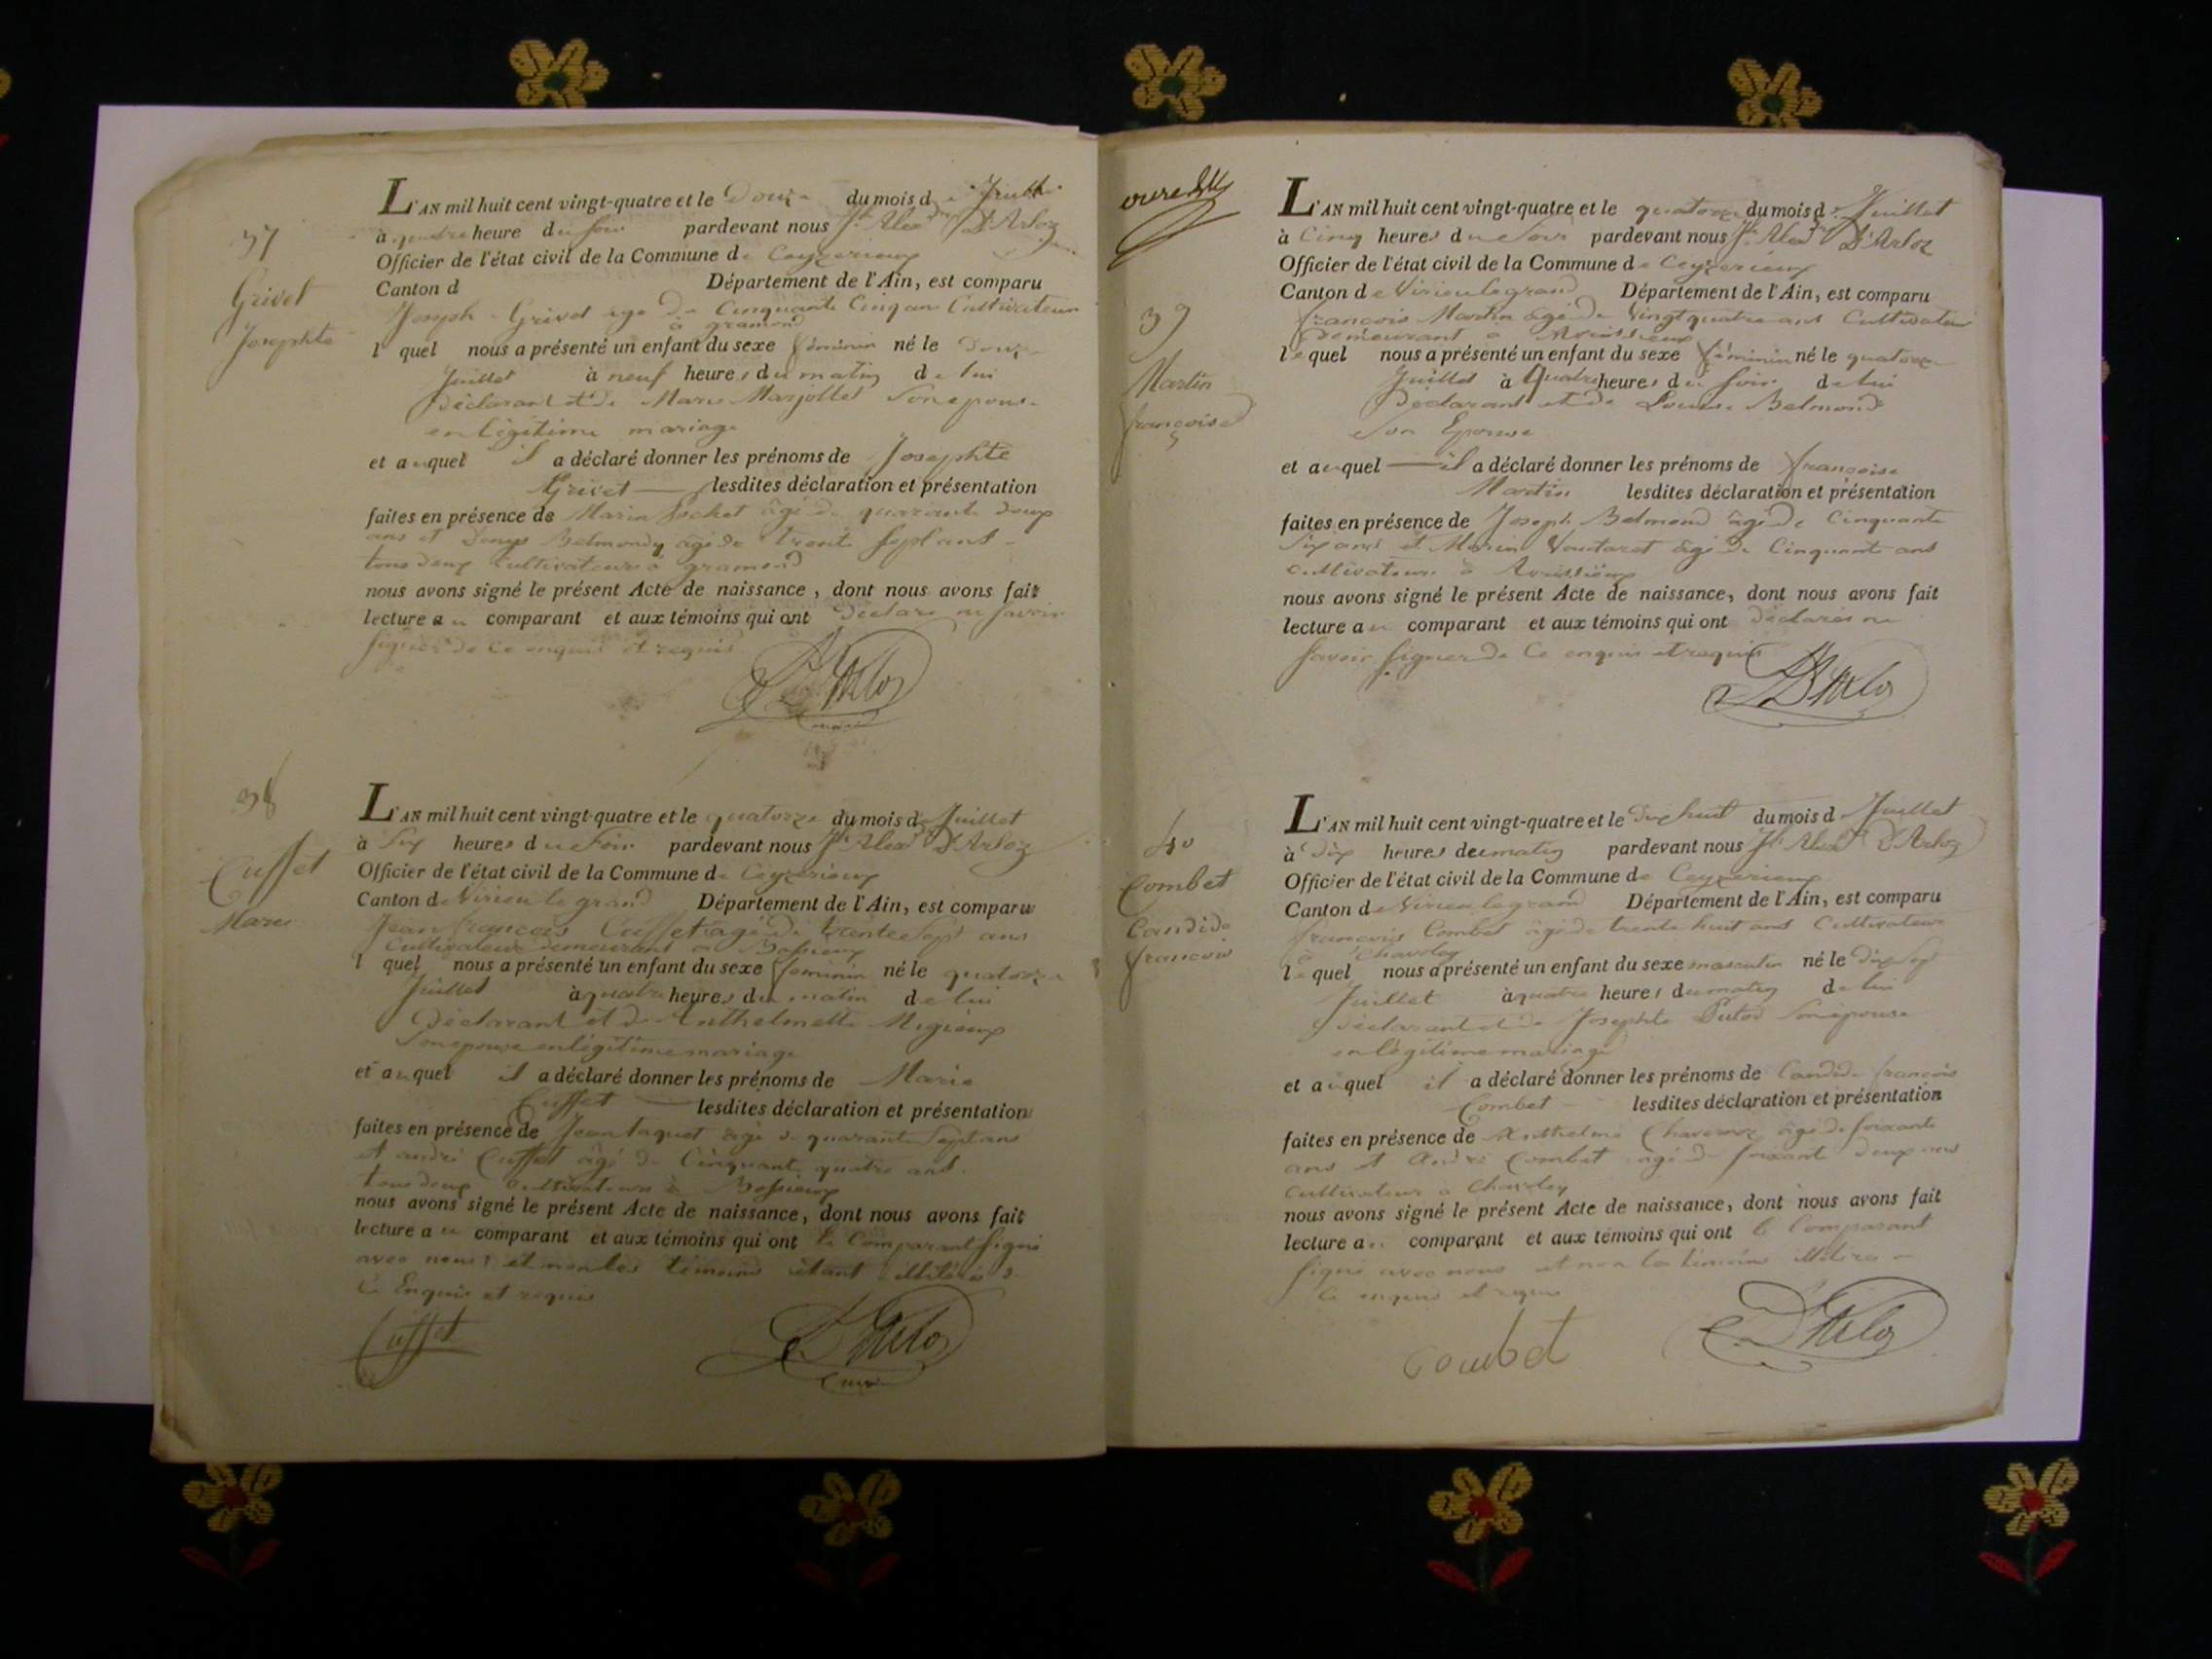 37
Grivet
Josephte
L'AN mil huit cent vingt-quatre et le Douze du mois de Juillet
à quatre heure du soir pardevant nous Jh Alexdre D'Arloz
Officier de l'état civil de la Commune de Ceyzerieux
Canton d Département de l'Ain, est comparu
Joseph Grivet agé de Cinquante Cinq ans Cultivateur
à gramond
l quel nous a présenté un enfant du sexe féminin né le Douze
Juillet à neuf heures du matin de lui
Déclarant et de Marie Marjollet Son epouse
en légitime mariage
et auquel il a déclaré donner les prénoms de Josephte
Grivet lesdites déclaration et présentation
faites en présence de Marin Sochet âgé de quarante Deux
ans et Denys Belmondy âgé de trente Sept ans
tous deux Cultivateurs à gramond
nous avons signé le présent Acte de naissance, dont nous avons fait
lecture au comparant et aux témoins qui ont Déclaré ne savoir
signer de Ce enquis et requis
D'Arloz
maire
38
Cuffet
Marie
L'AN mil huit cent vingt-quatre et le quatorze du mois de Juillet
à Six heures du Soir pardevant nous Jh Alexdre D'Arloz
Officier de l'état civil de la Commune de Ceyzerieux
Canton de Virieu le grand Département de l'Ain, est comparu
Jean françois Cuffet agé de trente Sept ans
Cultivateur demeurant à Bossieux
l quel nous a présenté un enfant du sexe féminin né le quatorze
Juillet à quatre heures du matin de lui
Déclarant et de Anthelmette Migieux
Son epouse en légitime mariage
et auquel il a déclaré donner les prénoms de Marie
Cuffet lesdites déclaration et présentation
faites en présence de Jean taquet âgé de quarante Sept ans
et andré Cuffet âgé de Cinquante quatre ans
tous deux Cultivateurs à Bossieux
nous avons signé le présent Acte de naissance, dont nous avons fait
lecture au comparant et aux témoins qui ont le Comparant Signé
avec nous et non les témoins étant illitérés de
Ce Enquis et requis
Cuffet D'Arloz
maire
39
Martin
françoise
L'AN mil huit cent vingt-quatre et le quatorze du mois de Juillet
à Cinq heures du Soir pardevant nous Jh Alexdre D'Arloz
Officier de l'état civil de la Commune de Ceyzerieux
Canton de Virieu le grand Département de l'Ain, est comparu
françois Martin âgé de Vingt quatre ans Cultivateur
Demeurant à Avrissieux
lequel nous a présenté un enfant du sexe féminin né le quatorze
Juillet à Quatre heures du soir de lui
Déclarant et de Louise Belmond
Son Epouse
et auquel il a déclaré donner les prénoms de françoise
Martin lesdites déclaration et présentation
faites en présence de Joseph Belmond âgé de Cinquante
Six ans et Marin Voutaret âgé de Cinquante ans
cultivateurs à Avrissieux
nous avons signé le présent Acte de naissance, dont nous avons fait
lecture au comparant et aux témoins qui ont Déclarés ne
Savoir Signer de Ce enquis et requis
D'Arloz
40
Combet
Candide
françois
L'AN mil huit cent vingt-quatre et le Dix huit du mois d Juillet
à dix heures du matin pardevant nous Jh Alexdre D'Arloz
Officier de l'état civil de la Commune de Ceyzerieux
Canton de Virieu le grand Département de l'Ain, est comparu
françois Combet âgé de trente huit ans Cultivateur
à Chavoley
lequel nous a présenté un enfant du sexe masculin né le dix sept
Juillet à quatre heures du matin de lui
Déclarant et de Josephte Putod Son épouse
en légitime mariage
et auquel il a déclaré donner les prénoms de Candide françois
Combet lesdites déclaration et présentation
faites en présence de Anthelme Chavernoz âgé de soixante
ans et André Combet âgé de soixante deux ans
Cultivateur à Chavoley
nous avons signé le présent Acte de naissance, dont nous avons fait
lecture au comparant et aux témoins qui ont le Comparant
signé avec nous et non les témoins
Ce enquis et requis
Combet D'Arloz